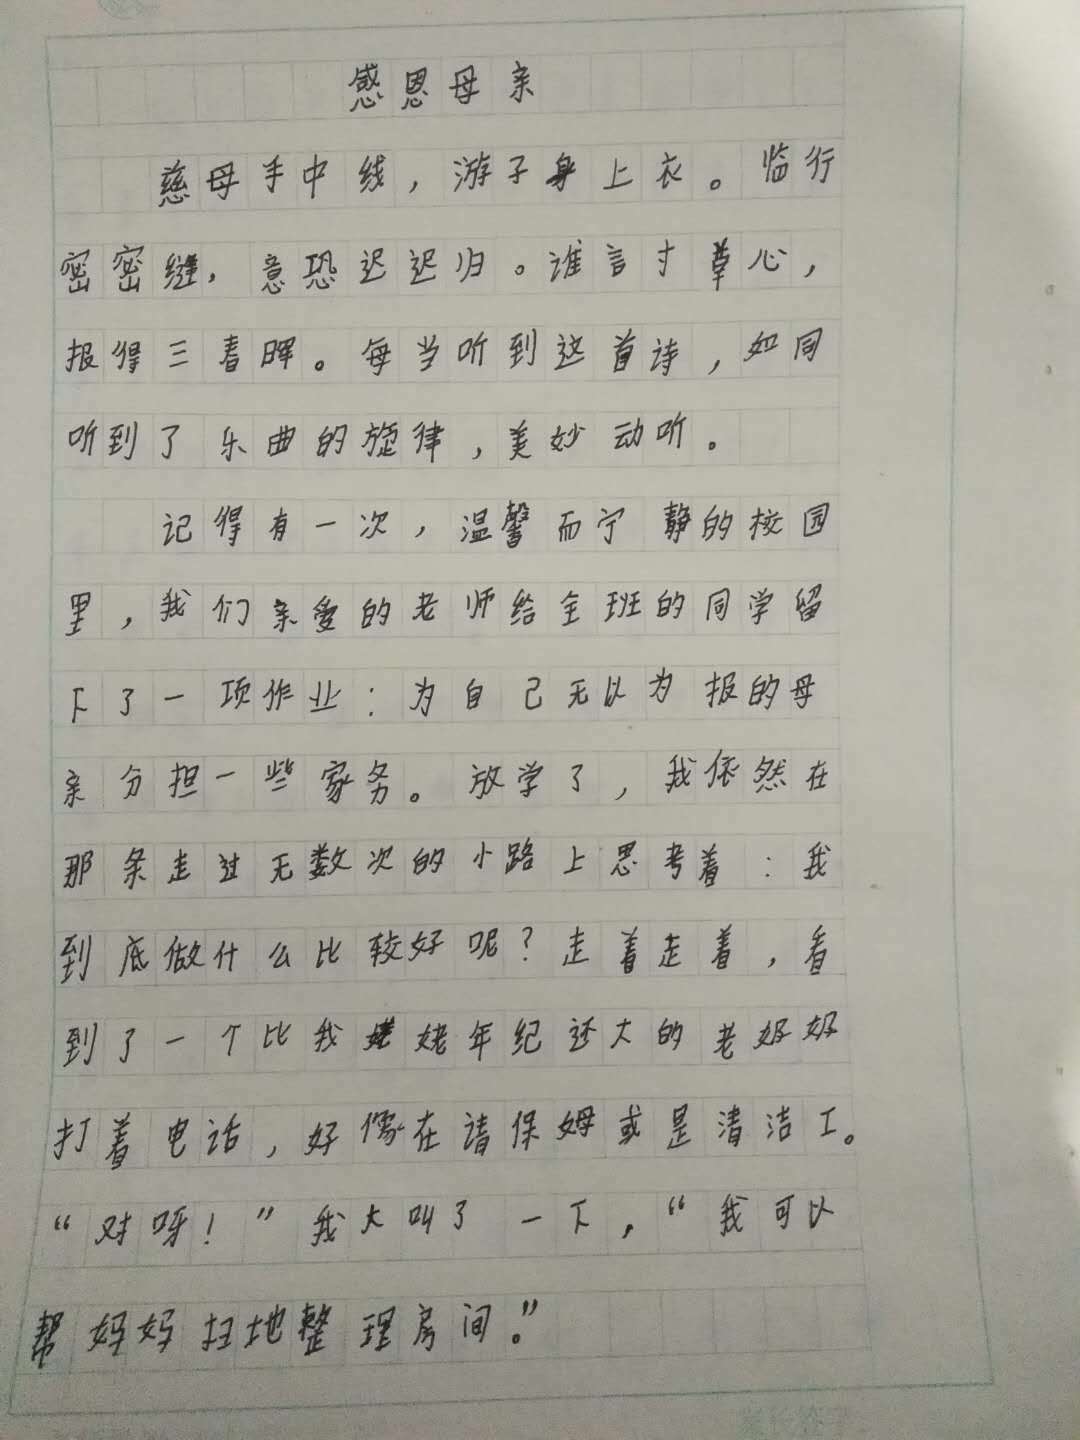 感恩母亲
慈母手中线，游子身上衣。临行
密密缝，意恐迟迟归。谁言寸草心，
报得三春晖。每当听到这首诗，如同
听到了乐曲的旋律，美妙动听。
记得有一次，温馨而宁静的校园
里，我们亲爱的老师给全班的同学留
下了一项作业：为自己无以为报的母
亲分担一些家务。放学了，我依然在
那条走过无数次的小路上思考着：我
到底做什么比较好呢？走着走着，看
到了一个比我姥姥年纪还大的老奶奶
打着电话，好像在请保姆或是清洁工。
“对呀！”我大叫了一下，“我可以
帮妈妈扫地整理房间。”